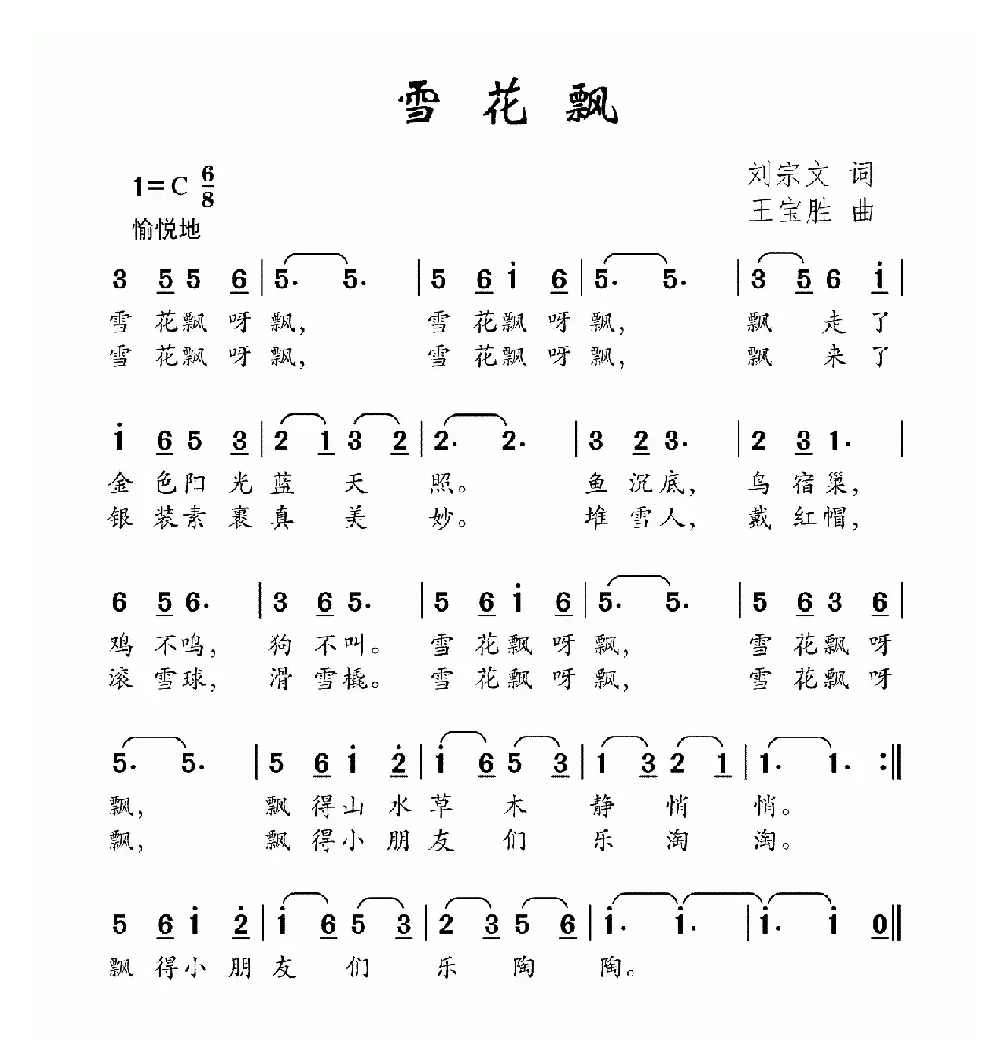 雪花飘
1=C 6/8
刘宗文 词
愉悦地
王宝胜 曲
3 5 5 6 | 5· 5· | 5 6 i 6 | 5· 5· | 3 5 6 i |
雪花飘呀飘， 雪花飘呀飘， 飘走了
雪花飘呀飘， 雪花飘呀飘， 飘来了
i 6 5 3 | 2 1 3 2 | 2· 2· | 3 2 3· | 2 3 1· |
金色阳光蓝天照。 鱼沉底， 鸟宿巢，
银装素裹真美妙。 堆雪人， 戴红帽，
6 5 6· | 3 6 5· | 5 6 i 6 | 5· 5· | 5 6 3 6 |
鸡不鸣， 狗不叫。 雪花飘呀飘， 雪花飘呀
滚雪球， 滑雪橇。 雪花飘呀飘， 雪花飘呀
5· 5· | 5 6 i 2̇ | i 6 5 3 | 1 3 2 1 | 1· 1· :‖
飘， 飘得山水草木静悄悄。
飘， 飘得小朋友们乐淘淘。
5 6 i 2̇ | i 6 5 3 | 2 3 5 6 | i· i· | i· i 0 ‖
飘得小朋友们乐陶陶。